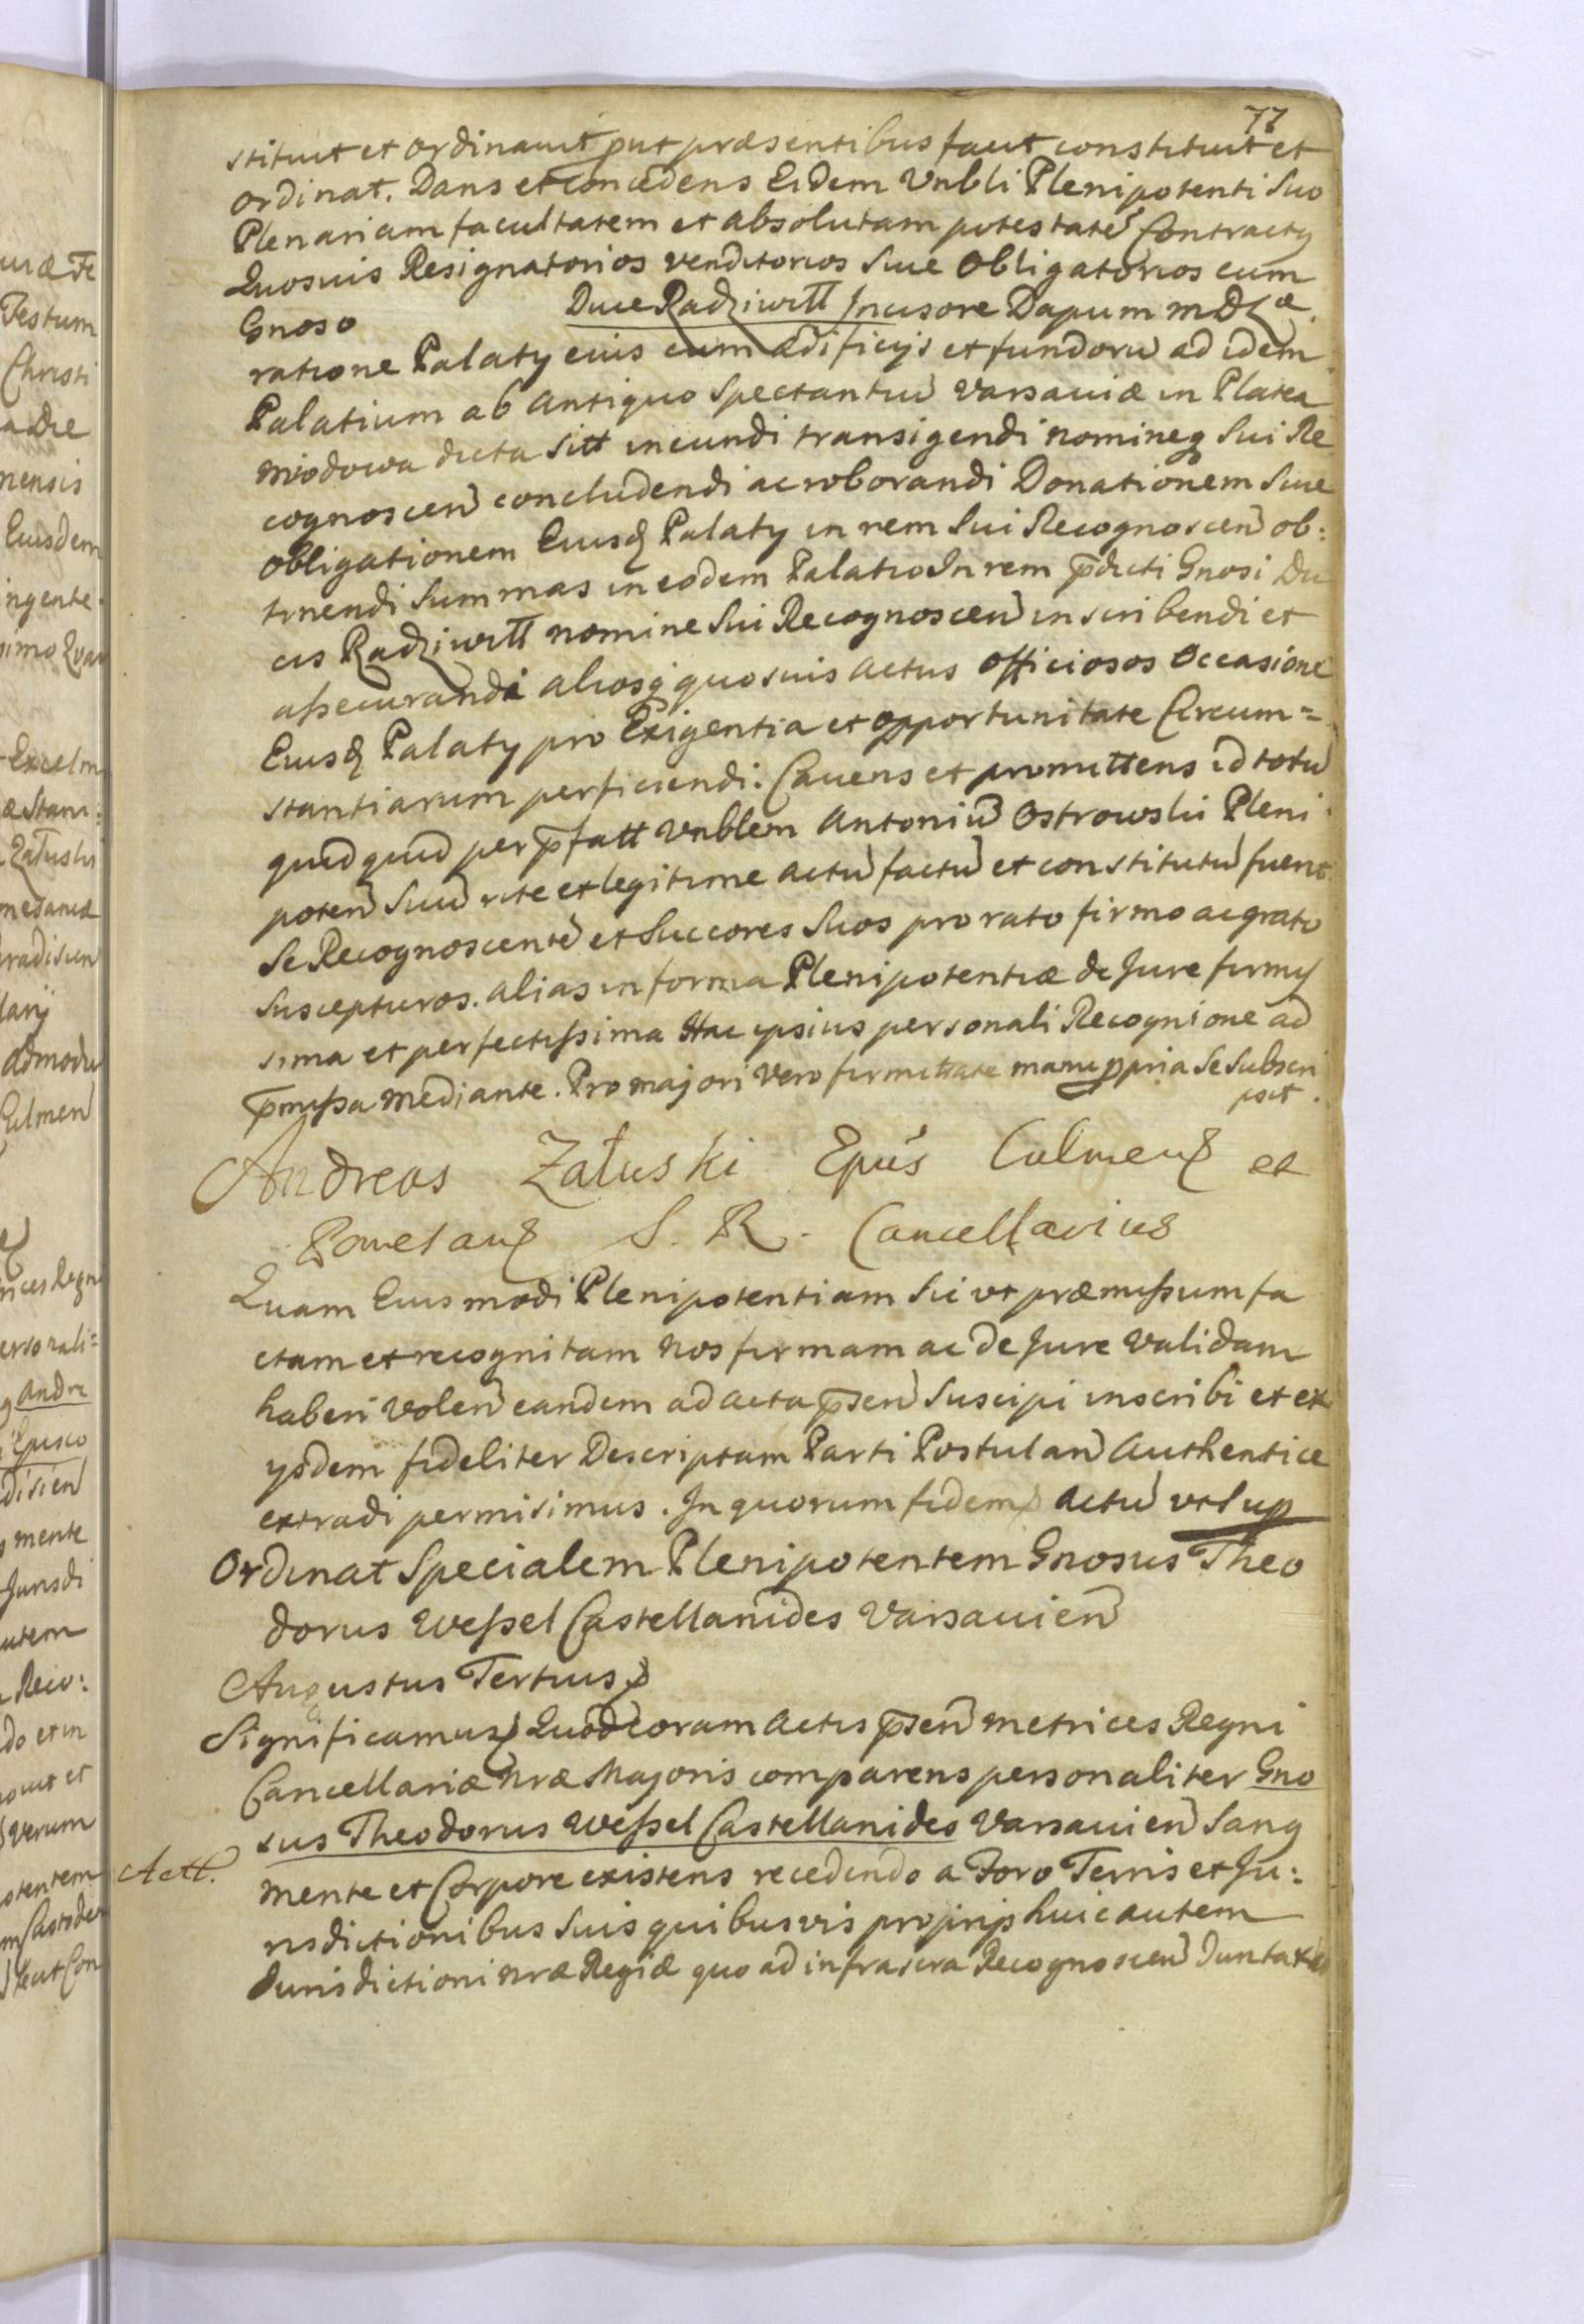 77
stituit et ordinavit put præsentibus facit constituit et
ordinat. Dans et concedens Eidem Vnbli Plenipotenti Suo
Plenariam facultatem et absolutam potestatē Contractg
Quosuis Resignatorios venditorios Siue Obligatorios cum
Gnoso Duce Radziwiłł Incisore Dapum M D L æ.
ratione Palaty eius cum ædificijs et fundorū ad idem
Palatium ab antiquo Spectantiū Varsauiæ in Platea
Miodowa dicta Sitt ineundi transigendi nomineq Sui Re
cognoscen concludendi ac roborandi Donationem Siue
obligationem Eiusd Palaty in rem Sui Recognoscen ob:
tinendi Summas in eodem Palatio In rem p̄dicti Gnosi Du
cis Radziwiłł nomine Sui Recognoscen inscribendi et
assecurandi aliosq quosuis actus officiosos Occasione
Eiusd Palaty pro Exigentia et opportunitate Circum=
stantiarum perficiendi. Cauens et promittens id totū
quidquid per p̄fatt Vnblem Antoniū Ostrowski Pleni
poten Suū rite et legitime actū factū et constitutū fuerit
Se Recognoscentē et Succores Suos pro rato firmo ac grato
Suscepturos. alias in forma Plenipotentiæ de Jure firmis
sima et perfectissima Hac ipsius personali Recognione ad
p̄missa mediante. Pro majori vero firmitate manu ppria Se Subscri
psit.
Andreas Załuski Epus Culmens et
Pomesans S. R. Cancellarius
Quam Eiusmodi Plenipotentiam Sic vt præmissum fa
ctam et recognitam Nos firmam ac de Jure validam
haberi volen eandem ad acta p̄sen Suscipi inscribi et ex
ysdem fideliter Descriptam Parti Postulan Authentice
extradi permisimus. In quorum fidem actū vt Sup
Ordinat Specialem Plenipotentem Gnosus Theo
dorus Wessel Castellanides Varsauien
Augustus Tertius
Significamus Quod coram actis p̄sen Metrices Regni
Cancellariæ Nræ Majoris comparens personaliter Gno
sus Theodorus Wessel Castellanides Varsauien Sang
Actt.
mente et Corpore existens recedendo a Foro Terris et Ju:
risdictionibus Suis quibusvis proprijs huic autem
Jurisdictioni Nræ Regiæ quo ad infrascra Recognoscen Duntaxat